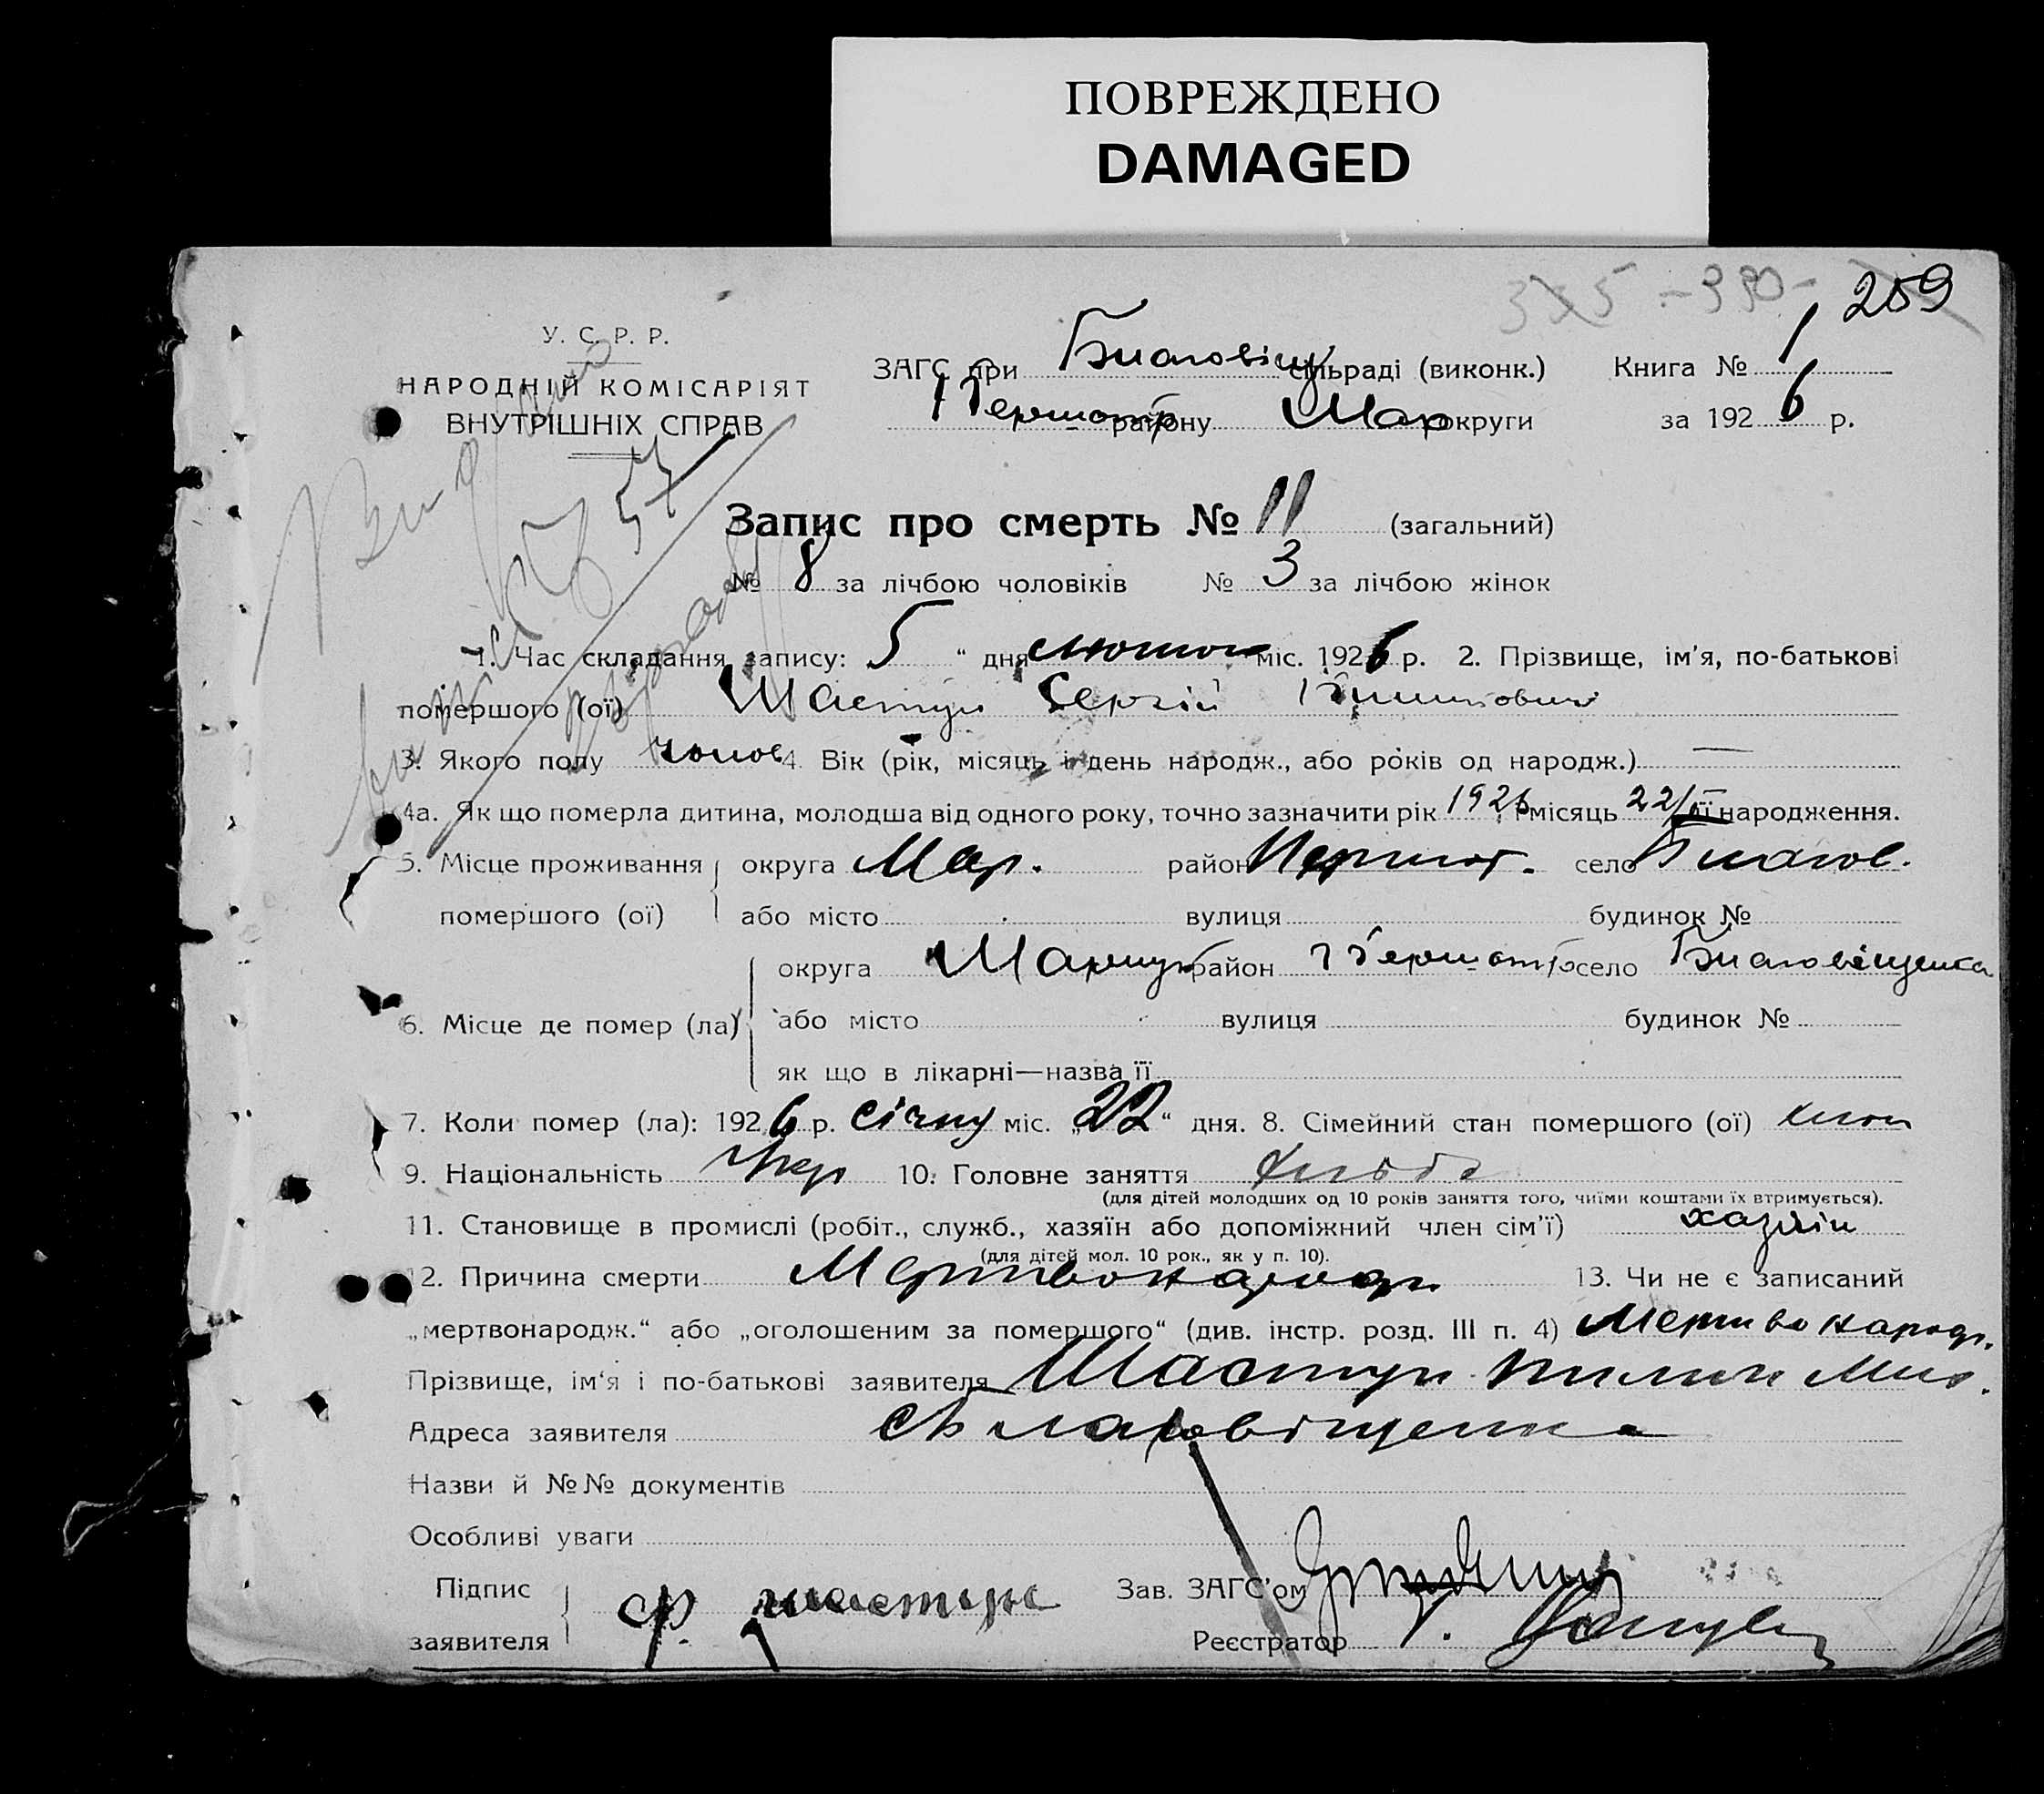 ПОВРЕЖДЕНО
DAMAGED
259
У. С. Р. Р.
НАРОДНІЙ КОМІСАРІЯТ
ВНУТРІШНІХ СПРАВ
ЗАГС при Благовіщ сільраді (виконк.) Книга № 1
району Мар округи за 1926 р.
Запис про смерть № 11 (загальний)
№ 8 за лічбою чоловіків № 3 за лічбою жінок
1. Час складання запису: 5 “ дня лютого міс. 1926 р. 2. Прізвище, ім'я, по-батькові
помершого (ої) Шастун Сергій
3. Якого полу чолов 4. Вік (рік, місяць і день народж., або років од народж.) —
4а. Як що померла дитина, молодша від одного року, точно зазначити рік 1926 місяць 22/I її народження.
5. Місце проживання округа Мар. район село Благов.
помершого (ої) або місто вулиця будинок №
округа район село Благовіщенка
6. Місце де помер (ла) або місто вулиця будинок №
як що в лікарні—назва її
7. Коли помер (ла): 1926 р. січну міс. „22“ дня. 8. Сімейний стан помершого (ої)
9. Національність Укр 10. Головне заняття
(для дітей молодших од 10 років заняття того, чиїми коштами їх втримується).
11. Становище в промислі (робіт., служб., хазяїн або допоміжний член сім'ї) хазяїн
(для дітей мол. 10 рок., як у п. 10).
12. Причина смерти Мертвонародж 13. Чи не є записаний
„мертвонародж.“ або „оголошеним за помершого“ (див. інстр. розд. III п. 4) Мертвонародж.
Прізвище, ім'я і по-батькові заявителя Шастун
Адреса заявителя с Благовіщенка
Назви й №№ документів
Особливі уваги
Підпис
заявителя Ф. Шастун
Зав. ЗАГС'ом
Реєстратор